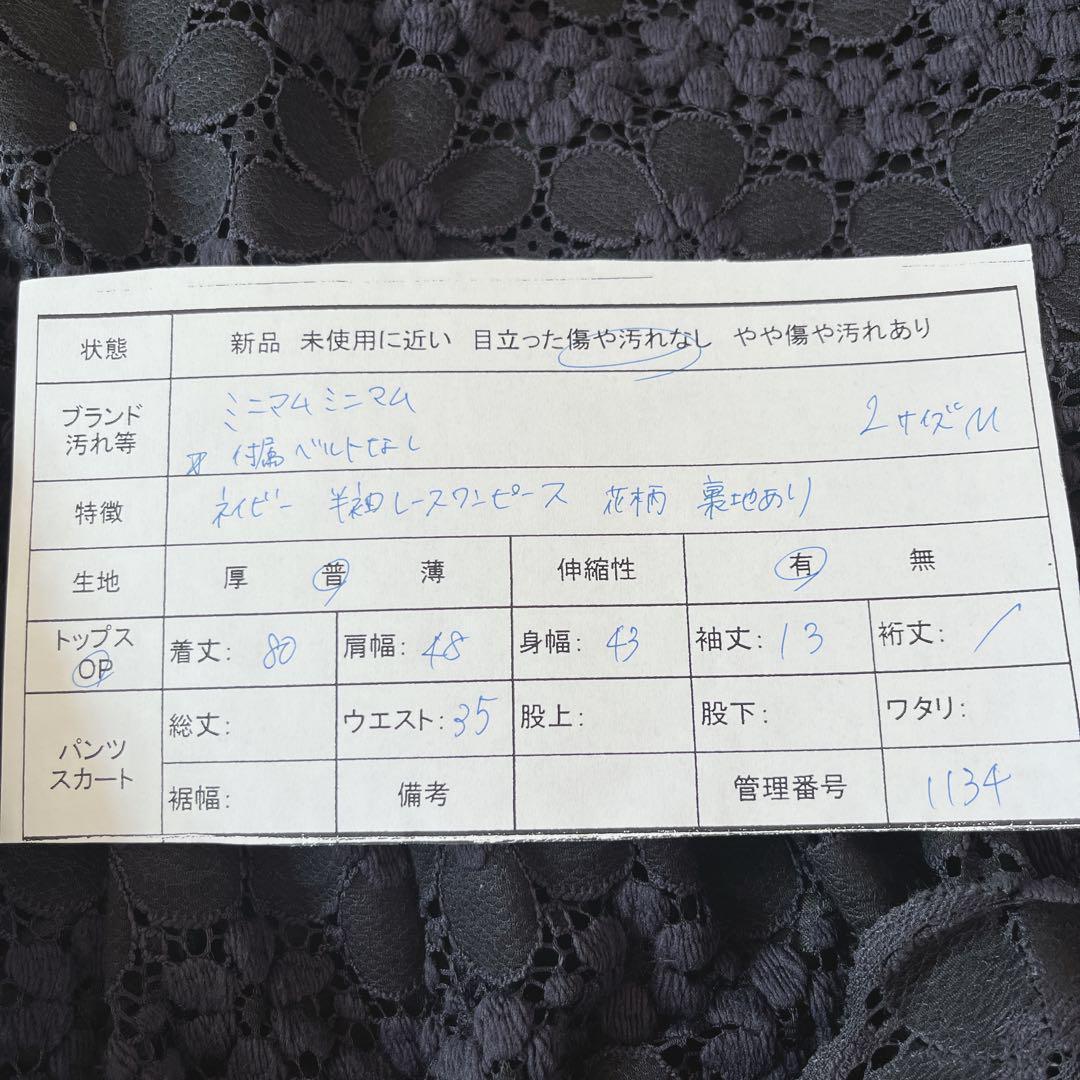 状態 新品 未使用に近い 目立った傷や汚れなし やや傷や汚れあり
ブランド 汚れ等 ミニマムミニマム 2サイズM
※付属ベルトなし
特徴 ネイビー 半袖レースワンピース 花柄 裏地あり
生地 厚 普 薄 伸縮性 有 無
トップス OP 着丈: 80 肩幅: 48 身幅: 43 袖丈: 13 裄丈: /
パンツ スカート 総丈: ウエスト: 35 股上: 股下: ワタリ:
裾幅: 備考 管理番号 1134